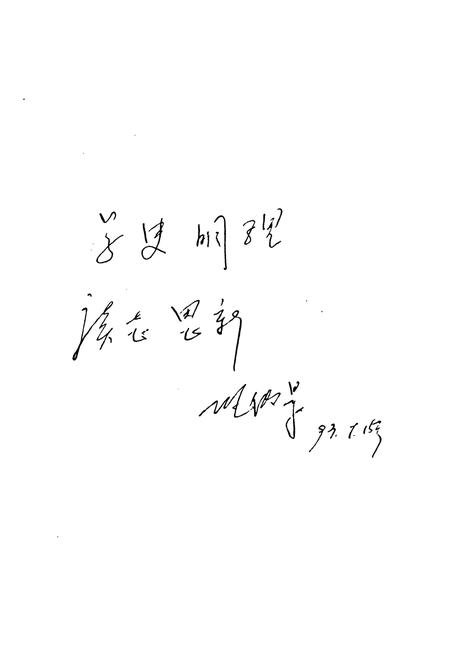 学史明理
读志思新
93.7.15号